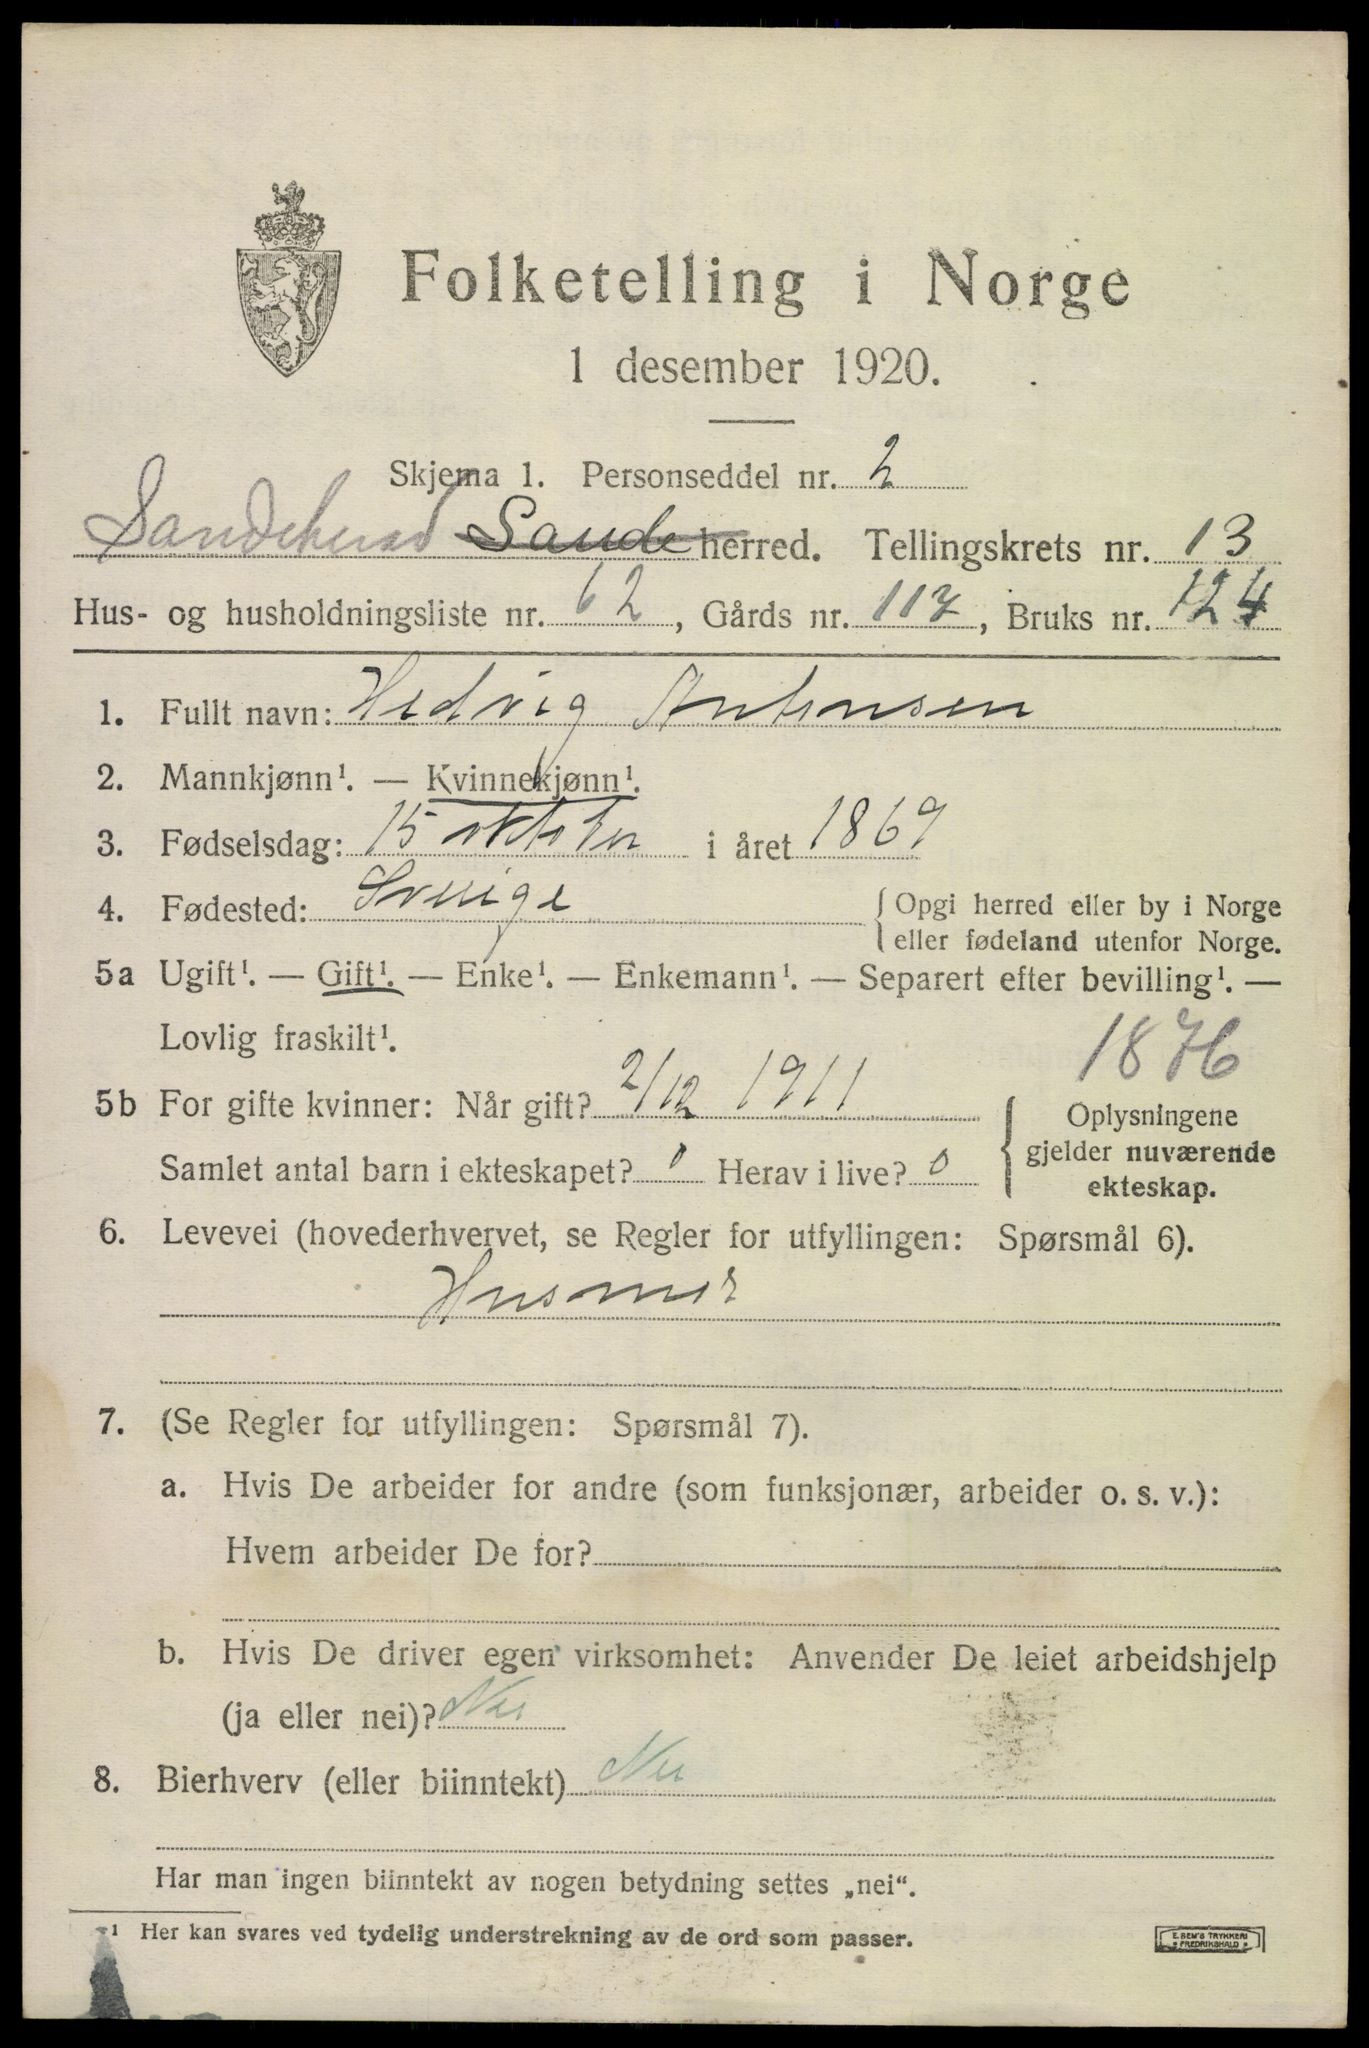 Folketelling i Norge
1 desember 1920.
Skjema 1. Personseddel nr. 2
Sandeherad Sande herred. Tellingskrets nr. 13
Hus- og husholdningsliste nr. 62, Gårds nr. 117, Bruks nr. 124
1. Fullt navn: Hedvig Antonsen
2. Mannkjønn¹. — Kvinnekjønn¹.
3. Fødselsdag: 15 oktober i året 1869
4. Fødested: Sverige { Opgi herred eller by i Norge
eller fødeland utenfor Norge.
5a Ugift¹. — Gift¹. — Enke¹. — Enkemann¹. — Separert efter bevilling¹. —
Lovlig fraskilt¹.
1876
5b For gifte kvinner: Når gift? 2/12 1911
Samlet antal barn i ekteskapet? 0 Herav i live? 0
{ Oplysningene
gjelder nuværende
ekteskap.
6. Levevei (hovederhvervet, se Regler for utfyllingen: Spørsmål 6).
Husmor
7. (Se Regler for utfyllingen: Spørsmål 7).
a. Hvis De arbeider for andre (som funksjonær, arbeider o. s. v.):
Hvem arbeider De for?
b. Hvis De driver egen virksomhet: Anvender De leiet arbeidshjelp
(ja eller nei)? Nei
8. Bierhverv (eller biinntekt) Nei
Har man ingen biinntekt av nogen betydning settes „nei“.
¹ Her kan svares ved tydelig understrekning av de ord som passer.
E. SEM'S TRYKKERI
FREDRIKSHALD